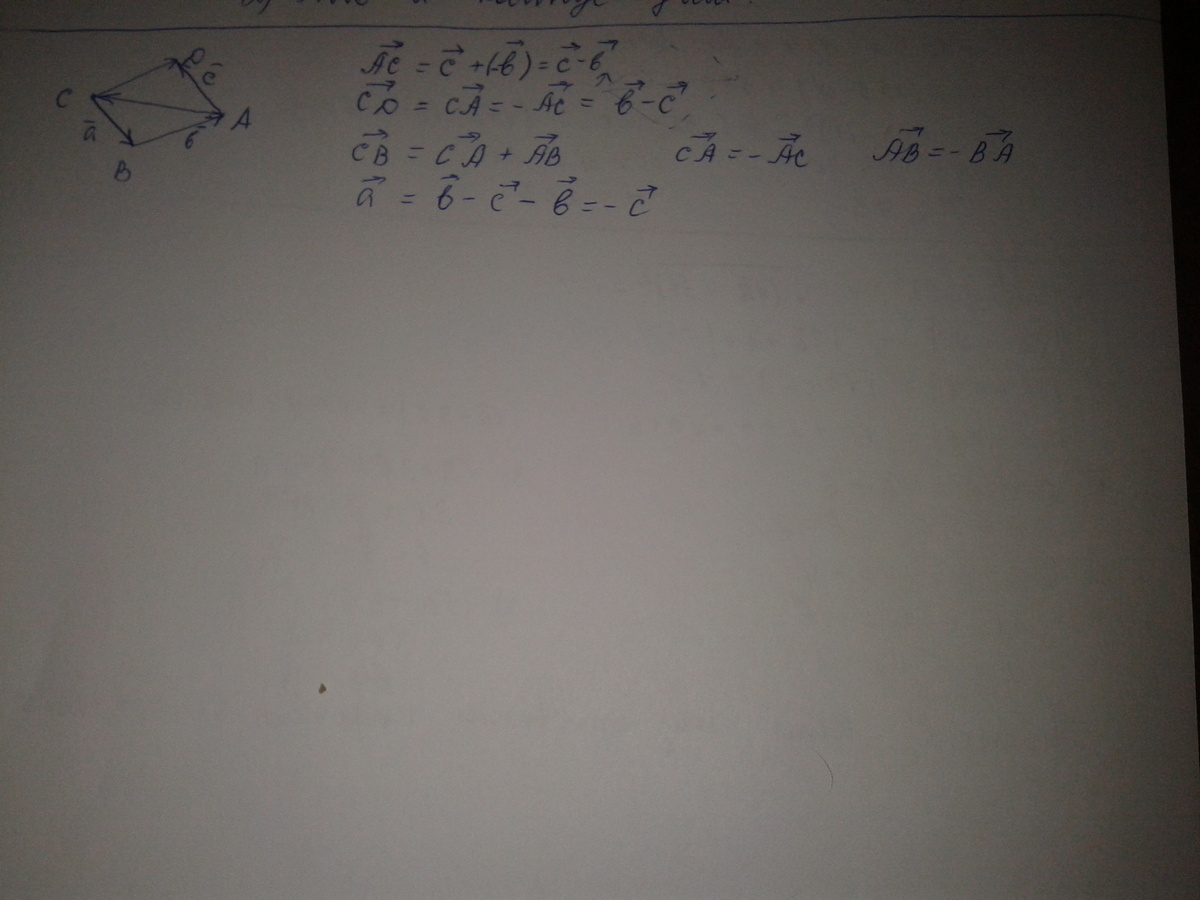 D
c⃗
C
A
a⃗
b⃗
B
AC⃗ = c⃗ + (-b⃗) = c⃗ - b⃗
CD⃗ = CA⃗ = - AC⃗ = b⃗ - c⃗
CB⃗ = CA⃗ + AB⃗ CA⃗ = - AC⃗ AB⃗ = - BA⃗
a⃗ = b⃗ - c⃗ - b⃗ = - c⃗